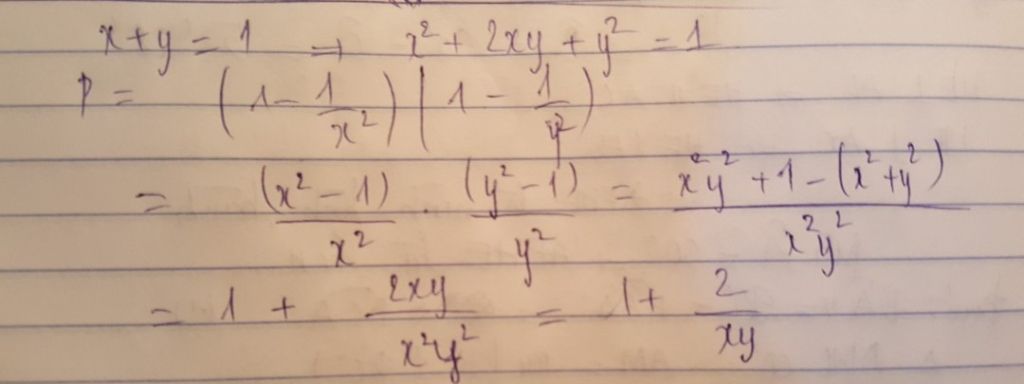 x+y = 1 ⇒ x² + 2xy + y² = 1
P = (1 - 1/x²) (1 - 1/y²)
= (x² - 1)/x² . (y² - 1)/y² = (x²y² + 1 - (x²+y²))/(x²y²)
= 1 + 2xy/(x²y²) = 1 + 2/(xy)